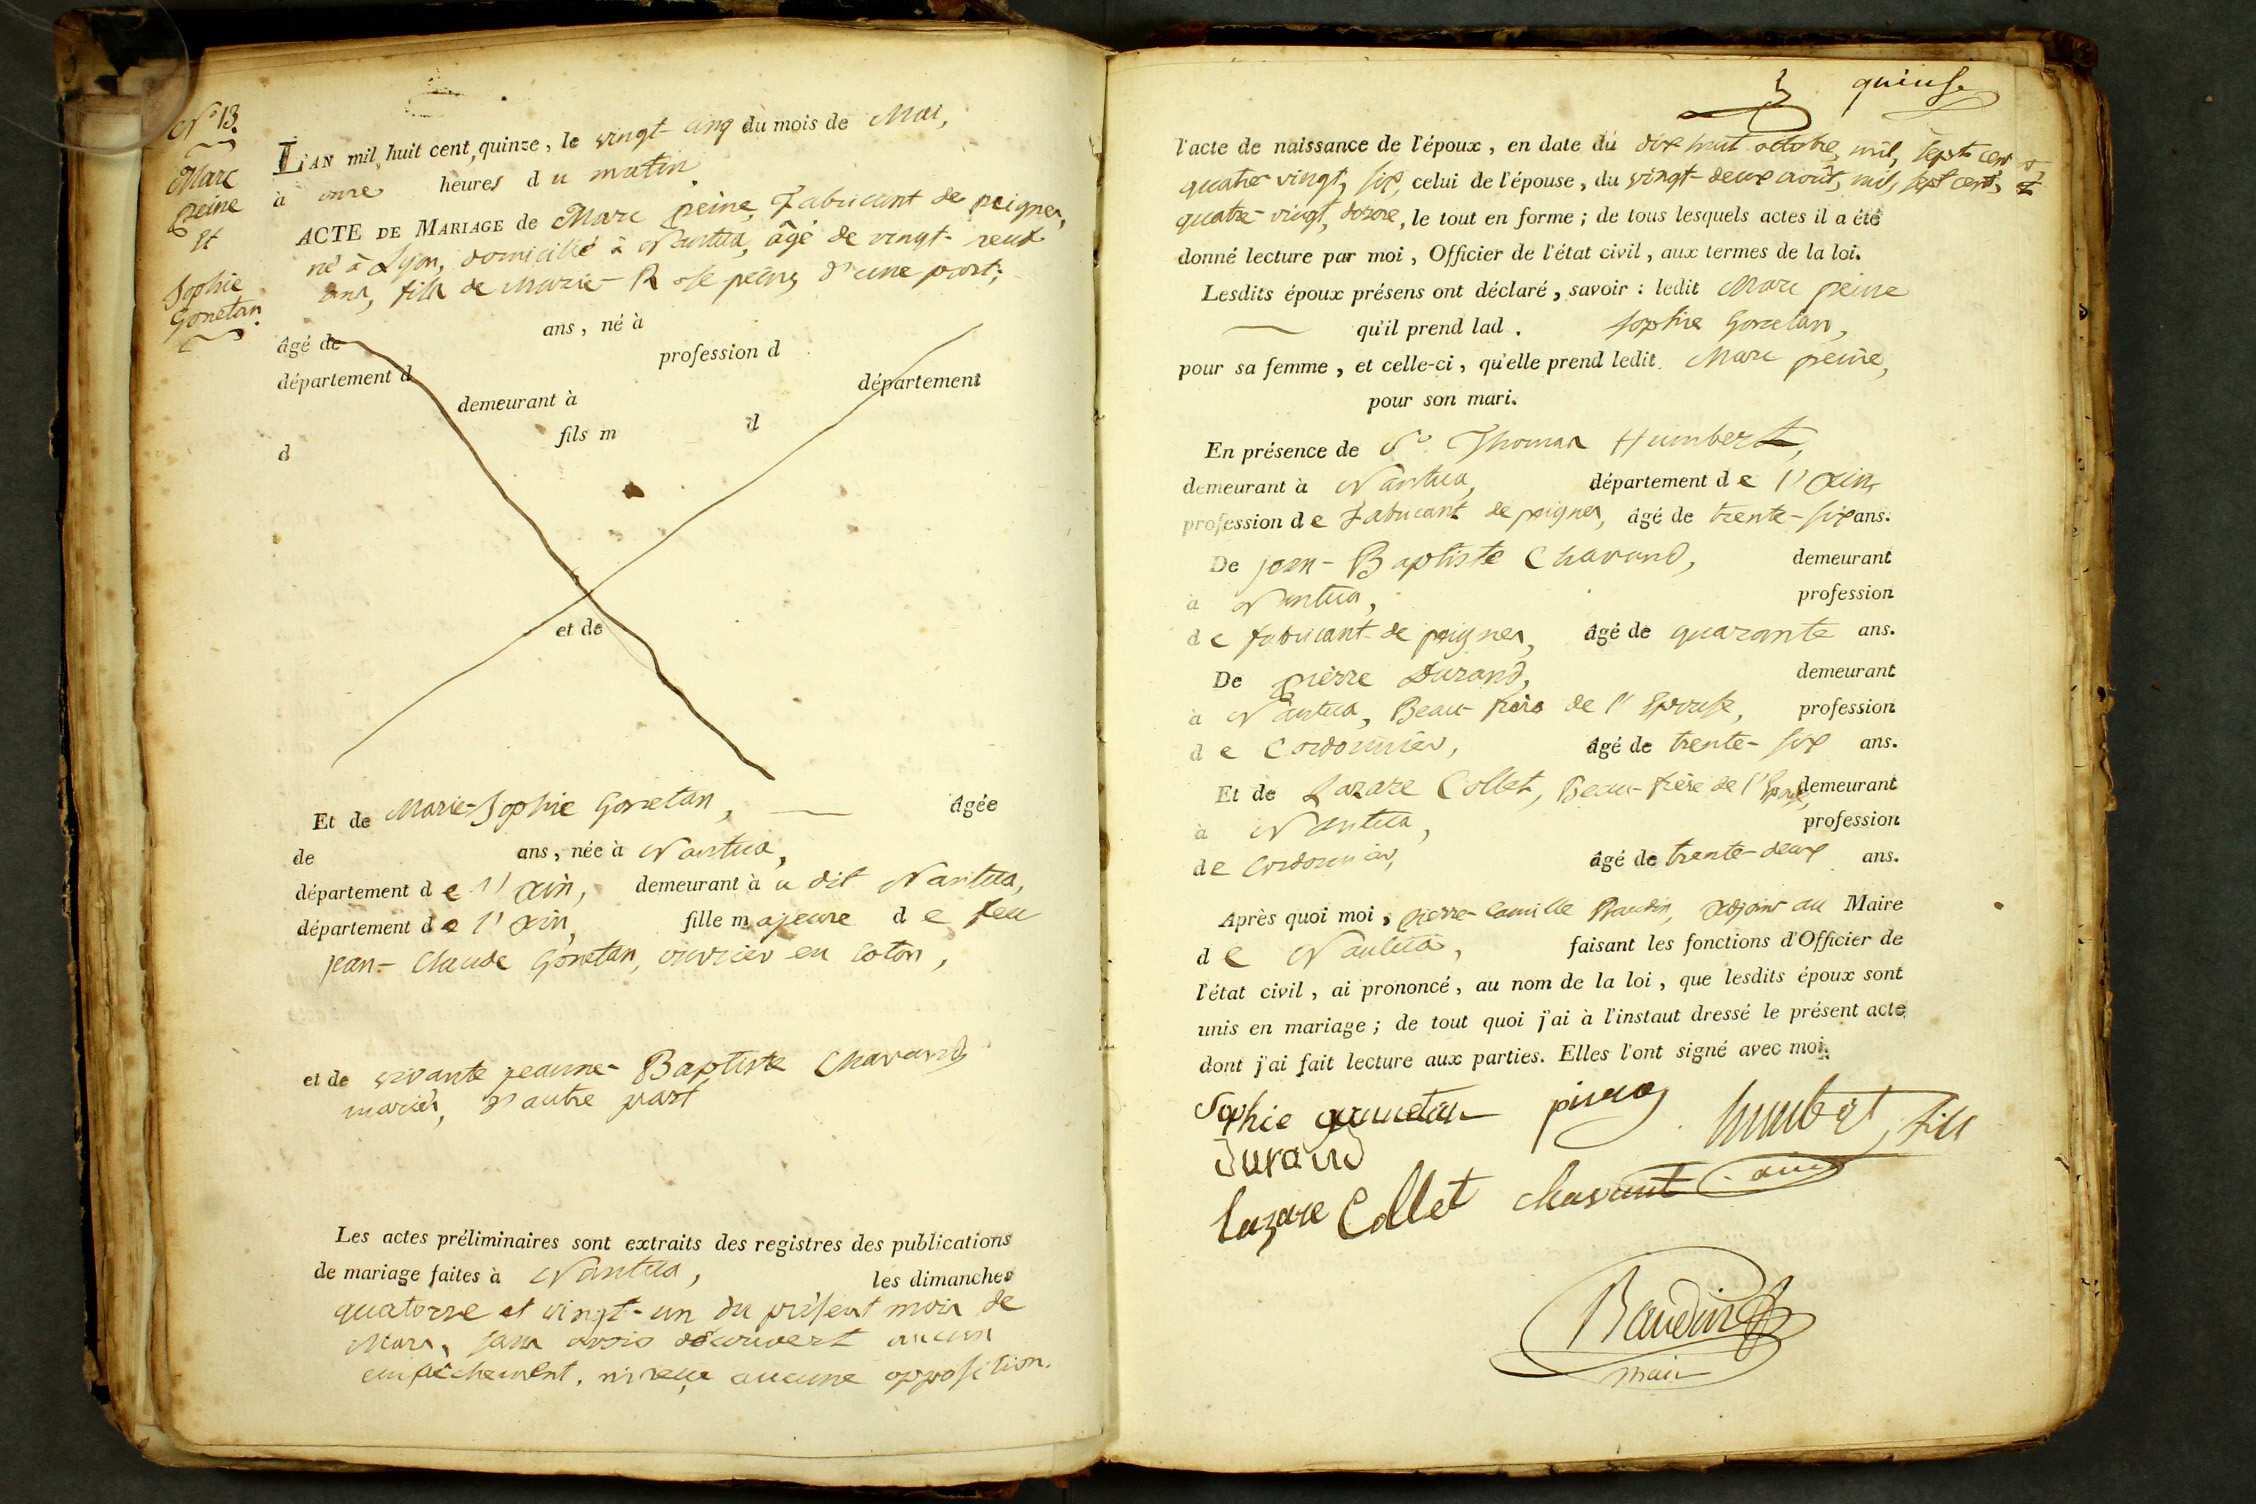 N° 13.
Marc
peine
Et
Sophie
Gonetan.
L'AN mil huit cent quinze, le vingt-cinq du mois de Mai,
à onze heures du matin
ACTE DE MARIAGE de Marc peine, Fabricant de peignes,
né à Lyon, domicilié à Nantua, âgé de vingt-neuf
ans, fils de Marie-Rose peine, d'une part;
âgé de ans, né à
département d profession d
demeurant à département
d fils m d
et de
Et de Marie-Sophie Gonetan, âgée
de ans, née à Nantua,
département de l'ain, demeurant à u dit Nantua,
département de l'ain, fille majeure de feu
jean-Claude Gonetan, ouvrier en coton,
et de vivante jeanne-Baptiste Chavand
mariés, d'autre part
Les actes préliminaires sont extraits des registres des publications
de mariage faites à Nantua, les dimanches
quatorze et vingt-un du présent mois de
Mars, sans avoir découvert aucun
empêchement, ni reçu aucune opposition.
quinse
l'acte de naissance de l'époux, en date du dix huit octobre, mil, sept cent
quatre vingt, six, celui de l'épouse, du vingt-deux août, mil, sept cent,
quatre-vingt, douze, le tout en forme; de tous lesquels actes il a été
donné lecture par moi, Officier de l'état civil, aux termes de la loi.
Lesdits époux présens ont déclaré, savoir: ledit Marc peine
qu'il prend lad. Sophie Gonetan,
pour sa femme, et celle-ci, qu'elle prend ledit Marc peine,
pour son mari.
En présence de Sr. Thomas Humbert,
demeurant à Nantua, département de l'ain,
profession de Fabricant de peignes, âgé de trente-six ans.
De jean-Baptiste Chavand, demeurant
à Nantua, profession
de fabricant de peignes, âgé de quarante ans.
De pierre Durand, demeurant
à Nantua, Beau-frère de l'Epouse, profession
de Cordonnier, âgé de trente-six ans.
Et de Lazare Collet, Beau-frère de l'Epouse, demeurant
à Nantua, profession
de Cordonnier, âgé de trente-deux ans.
Après quoi moi, pierre-Camille Baudin, adjoint au Maire
de Nantua, faisant les fonctions d'Officier de
l'état civil, ai prononcé, au nom de la loi, que lesdits époux sont
unis en mariage; de tout quoi j'ai à l'instaut dressé le présent acte
dont j'ai fait lecture aux parties. Elles l'ont signé avec moi.
Sophie gonnetan humbert fils
Durand
lazare Collet chavant
Baudin